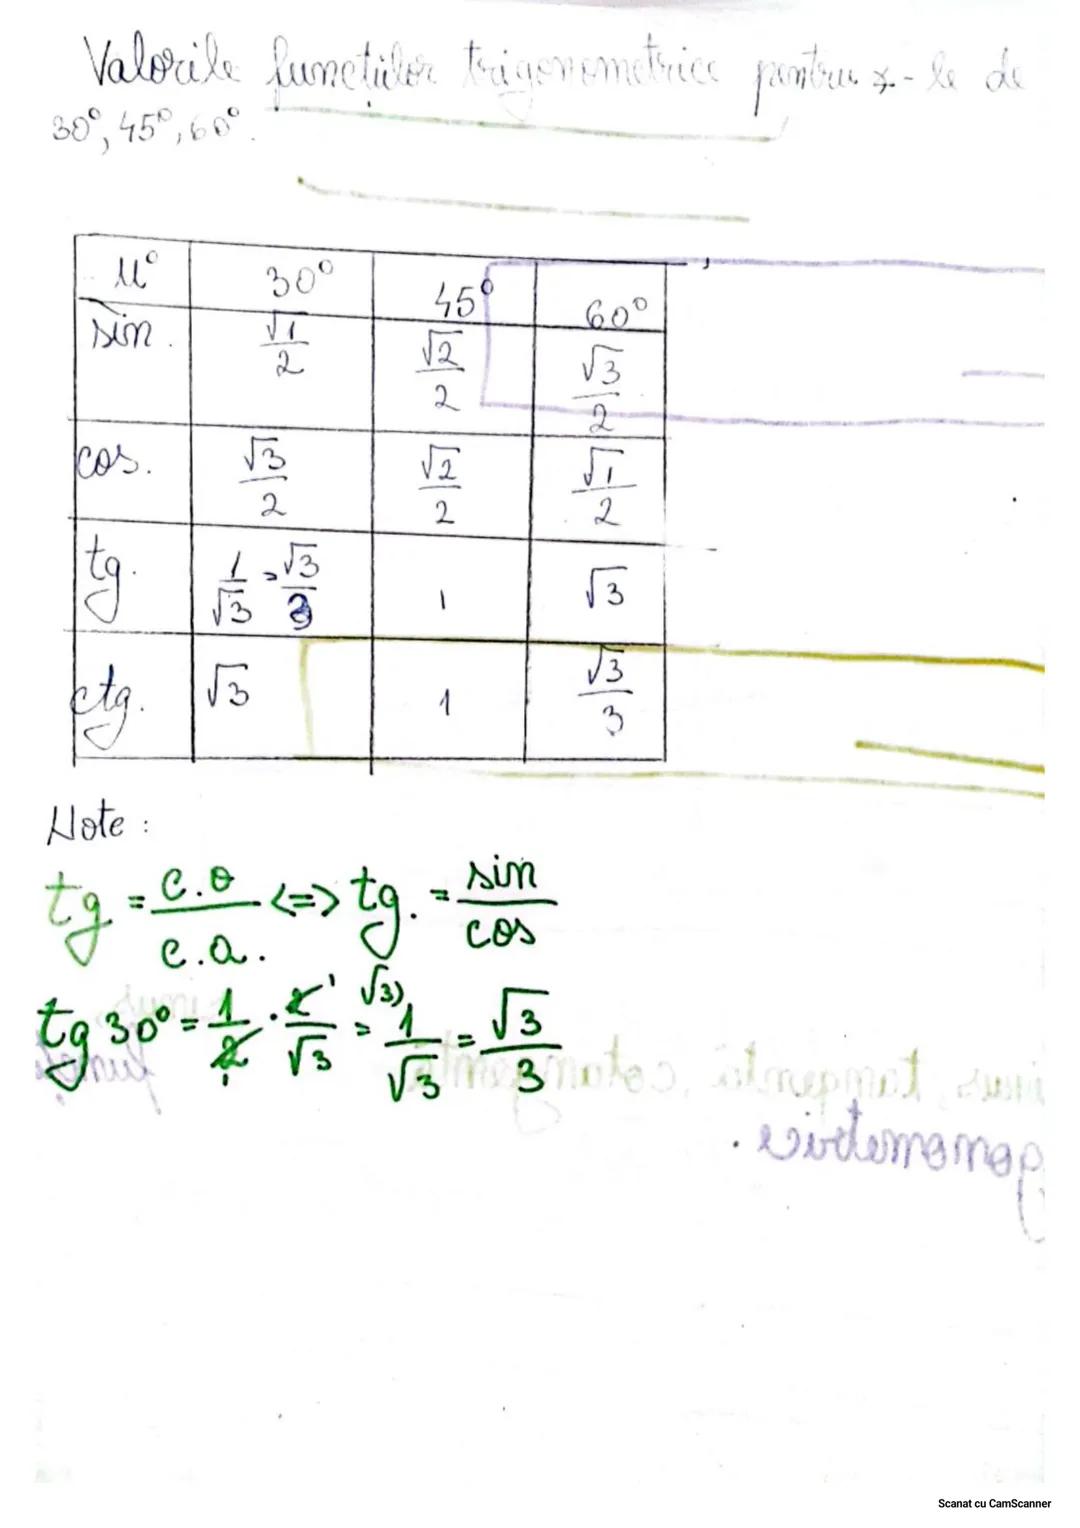 Valorile funcțiilor trigonometrice pentru ∢-le de
30°, 45°, 60°.
u° 30° 45° 60°
sin. √1/2 √2/2 √3/2
cos. √3/2 √2/2 √1/2
tg. 1/√3 = √3/3 1 √3
ctg. √3 1 √3/3
Note :
tg = c.o/c.a. <=> tg. = sin/cos
tg 30° = 1/2 · 2/√3 = √3) 1/√3 = √3/3
Scanat cu CamScanner